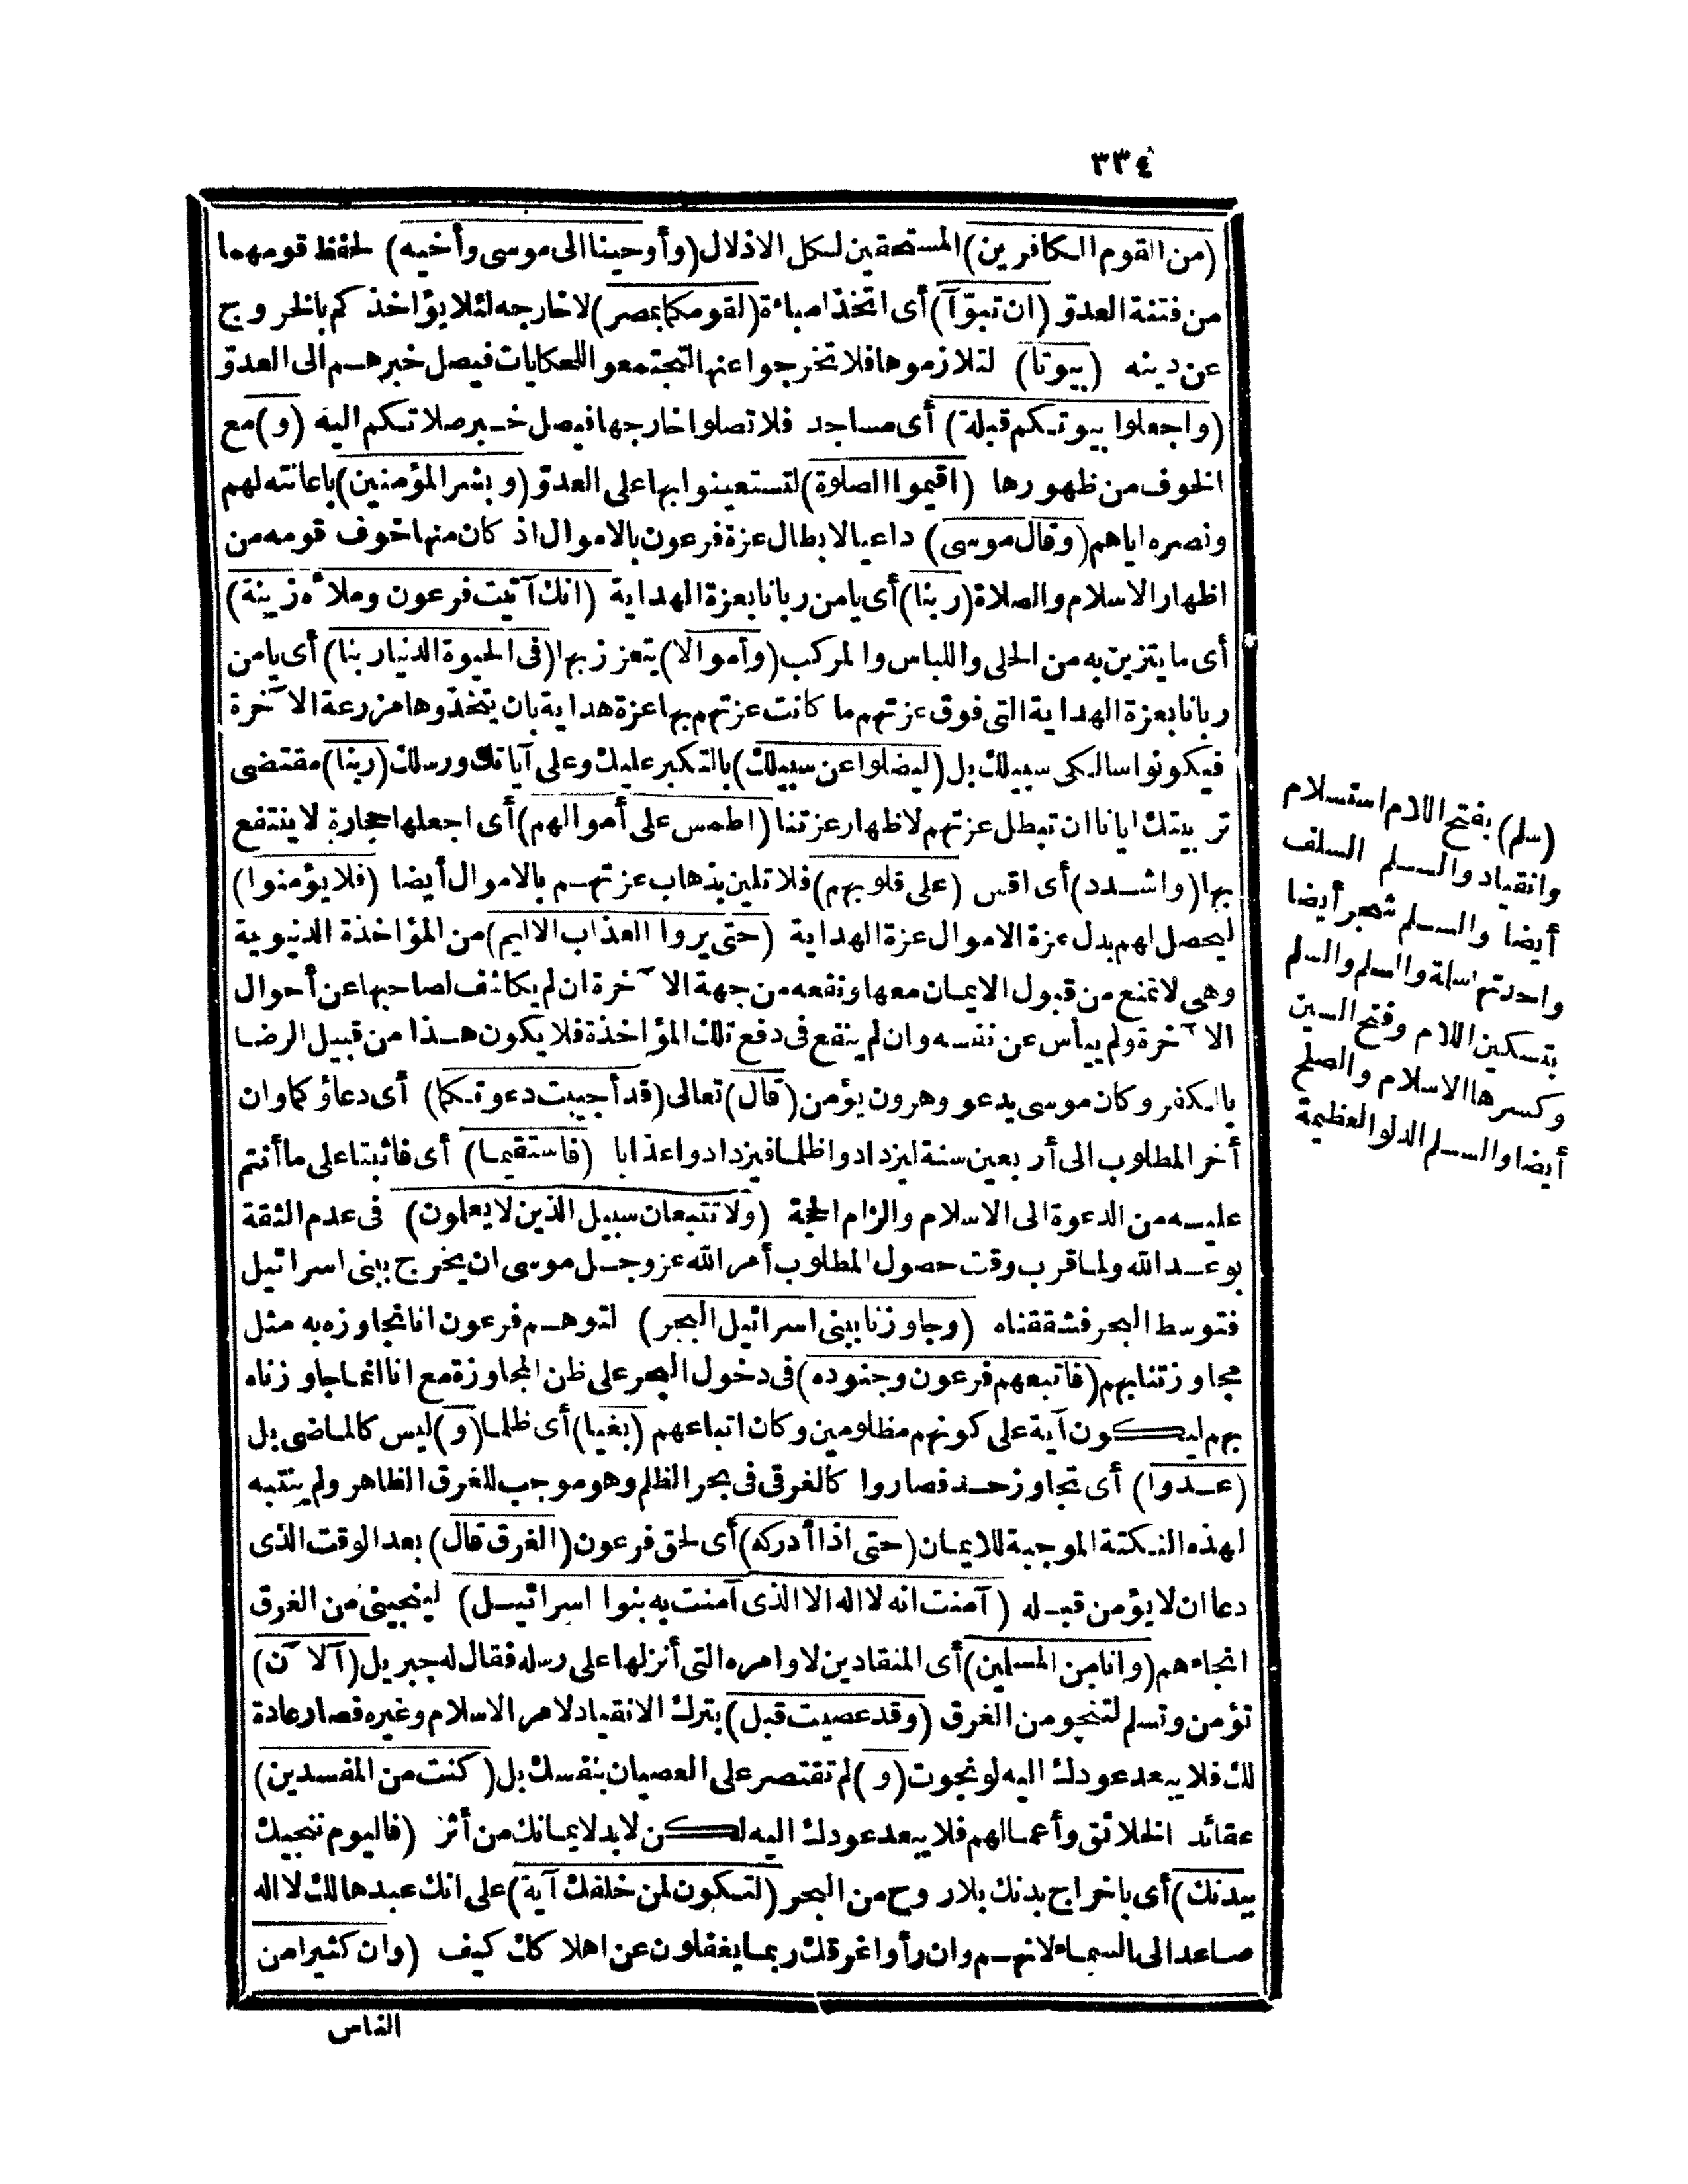 ٣٣٤
(من القوم الكافرين) المستحقين لكل الاذلال (وأوحينا الى موسى وأخيه) لحفظ قومهما
من فتنة العدوّ (ان تبوّآ) أى اتخذا مباءة (لقومكما بمصر) لا خارجه لئلا يؤاخذ كم بالخروج
عن دينه (بيوتا) لتلازموها فلا تخرجوا عنها لتجتمعوا للحكايات فيصل خبرهم الى العدوّ
(واجعلوا بيوتكم قبلة) أى مساجد فلا تصلوا خارجها فيصل خبر صلاتكم اليه (و) مع
الخوف من ظهورها (اقيموا الصلوة) لتستعينوا بها على العدوّ (وبشر المؤمنين) باعانته لهم
ونصره اياهم (وقال موسى) داعيا لابطال عزة فرعون بالاموال اذ كان منها خوف قومه من
اظهار الاسلام والصلاة (ربنا) أى يا من ربانا بعزة الهداية (انك آتيت فرعون وملأه زينة)
أى ما يتزين به من الحلى واللباس والمركب (وأموالا) يتعزز بها (فى الحيوة الدنيا ربنا) أى يا من
ربانا بعزة الهداية التى فوق عزتهم ما كانت عزتهم بها عزة هداية بان يتخذوها مزرعة الآخرة
فيكونوا سالكى سبيلك بل (ليضلوا عن سبيلك) بالتكبر عليك وعلى آياتك ورسلك (ربنا) مقتضى
تربيتك ايانا ان تبطل عزتهم لاظهار عزتنا (اطمس على أموالهم) أى اجعلها حجارة لا ينتفع
بها (واشدد) أى اقس (على قلوبهم) فلا تلين بذهاب عزتهم بالاموال أيضا (فلا يؤمنوا)
ليحصل لهم بدل عزة الاموال عزة الهداية (حتى يروا العذاب الاليم) من المؤاخذة الدنيوية
وهى لا تمنع من قبول الايمان معها ونفعه من جهة الآخرة ان لم يكاشف لصاحبها عن أحوال
الآخرة ولم ييأس عن نفسه وان لم ينفع فى دفع تلك المؤاخذة فلا يكون هذا من قبيل الرضا
بالكفر وكان موسى يدعو وهرون يؤمن (قال) تعالى (قد أجيبت دعوتكما) أى دعاؤكما وان
أخر المطلوب الى أربعين سنة ليزدادوا ظلما فيزدادوا عذابا (فاستقيما) أى فاثبتا على ما أنتم
عليه من الدعوة الى الاسلام والزام الحجة (ولا تتبعان سبيل الذين لا يعلمون) فى عدم الثقة
بوعد الله ولما قرب وقت حصول المطلوب أمر الله عز وجل موسى ان يخرج ببنى اسرائيل
فتوسط البحر فشققناه (وجاوزنا ببنى اسرائيل البحر) لتوهم فرعون انا نجاوزه به مثل
مجاوزتنا بهم (فاتبعهم فرعون وجنوده) فى دخول البحر على ظن المجاوزة مع انا انما جاوزناه
بهم ليكون آية على كونهم مظلومين وكان اتباعهم (بغيا) أى ظلما (و) ليس كالماضى بل
(عدوا) أى تجاوز حد فصاروا كالغرقى فى بحر الظلم وهو موجب للغرق الظاهر ولم ينتبه
لهذه النكتة الموجبة للايمان (حتى اذا أدركه) أى لحق فرعون (الغرق قال) بعد الوقت الذى
دعا ان لا يؤمن قبله (آمنت انه لا اله الا الذى آمنت به بنوا اسرائيل) لينجينى من الغرق
انجاءهم (وانا من المسلمين) أى المنقادين لاوامره التى أنزلها على رسله فقال له جبريل (آلآن)
تؤمن وتسلم لتنجو من الغرق (وقد عصيت قبل) بترك الانقياد لامر الاسلام وغيره فصار عادة
لك فلا يبعد عودك اليه لو نجوت (و) لم تقتصر على العصيان بنفسك بل (كنت من المفسدين)
عقائد الخلائق وأعمالهم فلا يبعد عودك اليه لكن لا بد لايمانك من أثر (فاليوم ننجيك
ببدنك) أى باخراج بدنك بلا روح من البحر (لتكون لمن خلفك آية) على انك عبد هالك لا اله
صاعد الى السماء لانهم وان رأوا غرقك ربما يغفلون عن اهلا كك كيف (وان كثيرا من
الناس
(سلم) بفتح اللام استسلام
وانقياد والسلم السلف
أيضا والسلم شجر أيضا
واحدتها سلمة والسلم والسلم
بتسكين اللام وفتح السين
وكسرها الاسلام والصلح
أيضا والسلم الدلو العظيمة